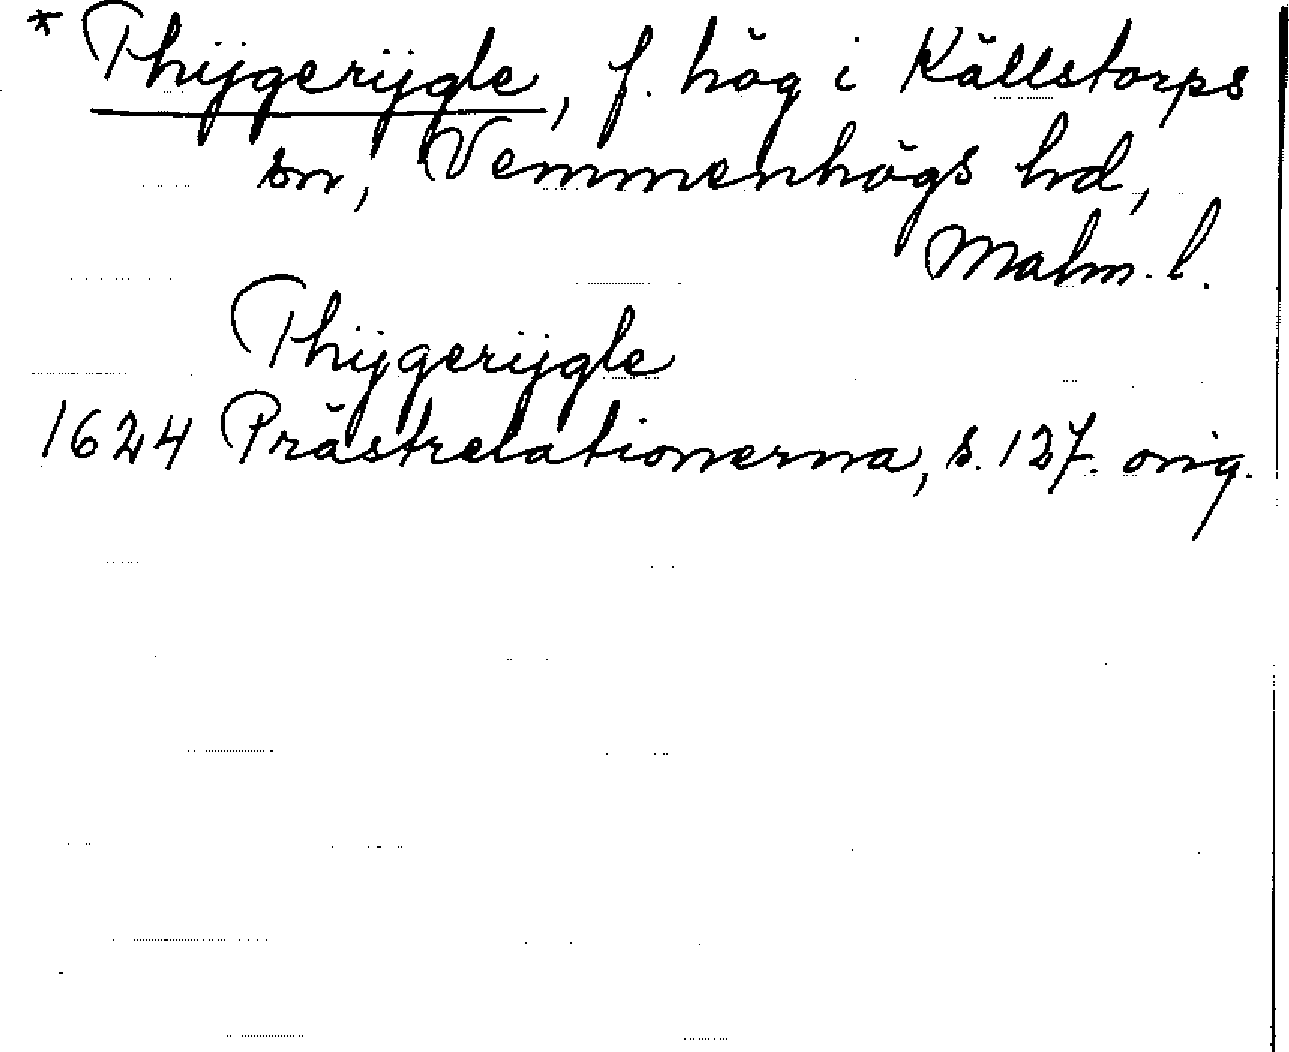 * Thijgerijgle, f. hög i Källstorps
sn, Vemmenhögs hd,
Malm. l.
Thijgerijgle
1624 Prästrelationerna, s. 127. orig.